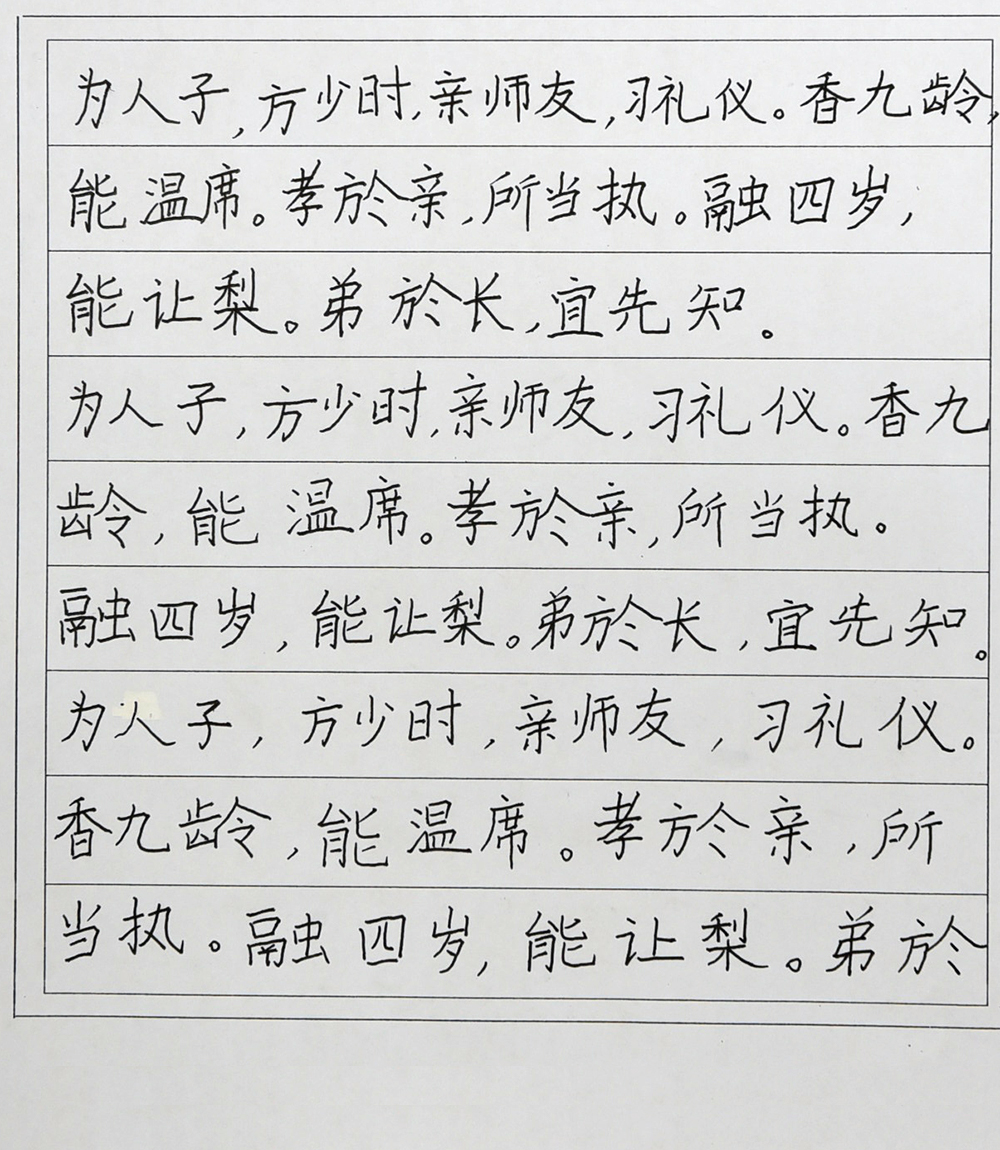 为人子,方少时,亲师友,习礼仪。香九龄,
能温席。孝於亲,所当执。融四岁,
能让梨。弟於长,宜先知。
为人子,方少时,亲师友,习礼仪。香九
龄,能温席。孝於亲,所当执。
融四岁,能让梨。弟於长,宜先知。
为人子,方少时,亲师友,习礼仪。
香九龄,能温席。孝於亲,所
当执。融四岁,能让梨。弟於